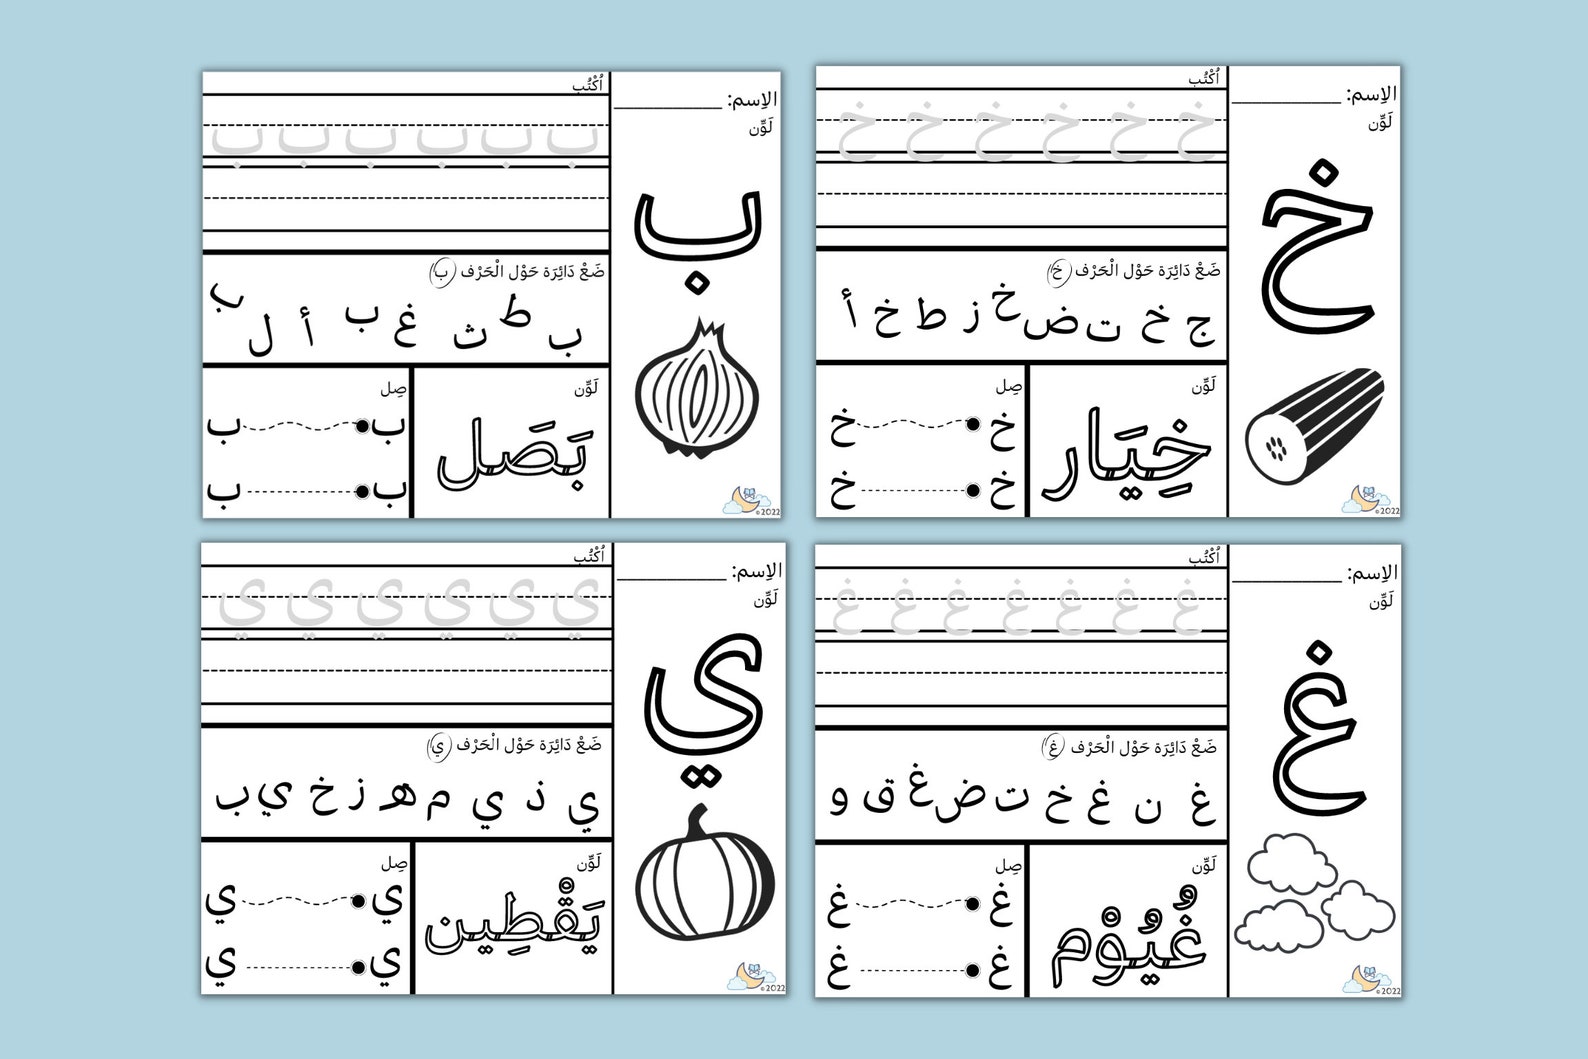 الاِسم: ___________
لَوِّن
ب
اُكْتُب
ب ب ب ب ب ب
ضَعْ دَائِرَة حَوْل الْحَرْف (ب)
ب ط ث غ ب أ ل ب
لَوِّن
بَصَل
صِل
ب ب
ب ب
©2022
الاِسم: ___________
لَوِّن
خ
اُكْتُب
خ خ خ خ خ خ
ضَعْ دَائِرَة حَوْل الْحَرْف (خ)
ج خ ت ض خ ز ط خ أ
لَوِّن
خِيَار
صِل
خ خ
خ خ
©2022
الاِسم: ___________
لَوِّن
ي
اُكْتُب
ي ي ي ي ي ي
ضَعْ دَائِرَة حَوْل الْحَرْف (ي)
ي ذ ي م هـ ز خ ي ب
لَوِّن
يَقْطِين
صِل
ي ي
ي ي
©2022
الاِسم: ___________
لَوِّن
غ
اُكْتُب
غ غ غ غ غ غ غ
ضَعْ دَائِرَة حَوْل الْحَرْف (غ)
غ ن غ خ ت ض غ ق و
لَوِّن
غُيُوْم
صِل
غ غ
غ غ
©2022